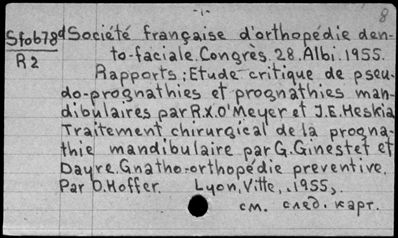 8
Sfob78d Société française d'orthopédie den-
R2 to-faciale. Congrès. 28. Albi. 1955.
Rapports: Etude critique de pseu-
do-prognathies et prognathies man-
dibulaires par R.X.O'Meyer et J.E.Heskia
Traitement chirurgical de la progna-
thie mandibulaire par G.Ginestet et
Dayre. Gnatho-orthopédie preventive.
Par O.Hoffer. Lyon, Vitte, 1955,.
см. след. карт.